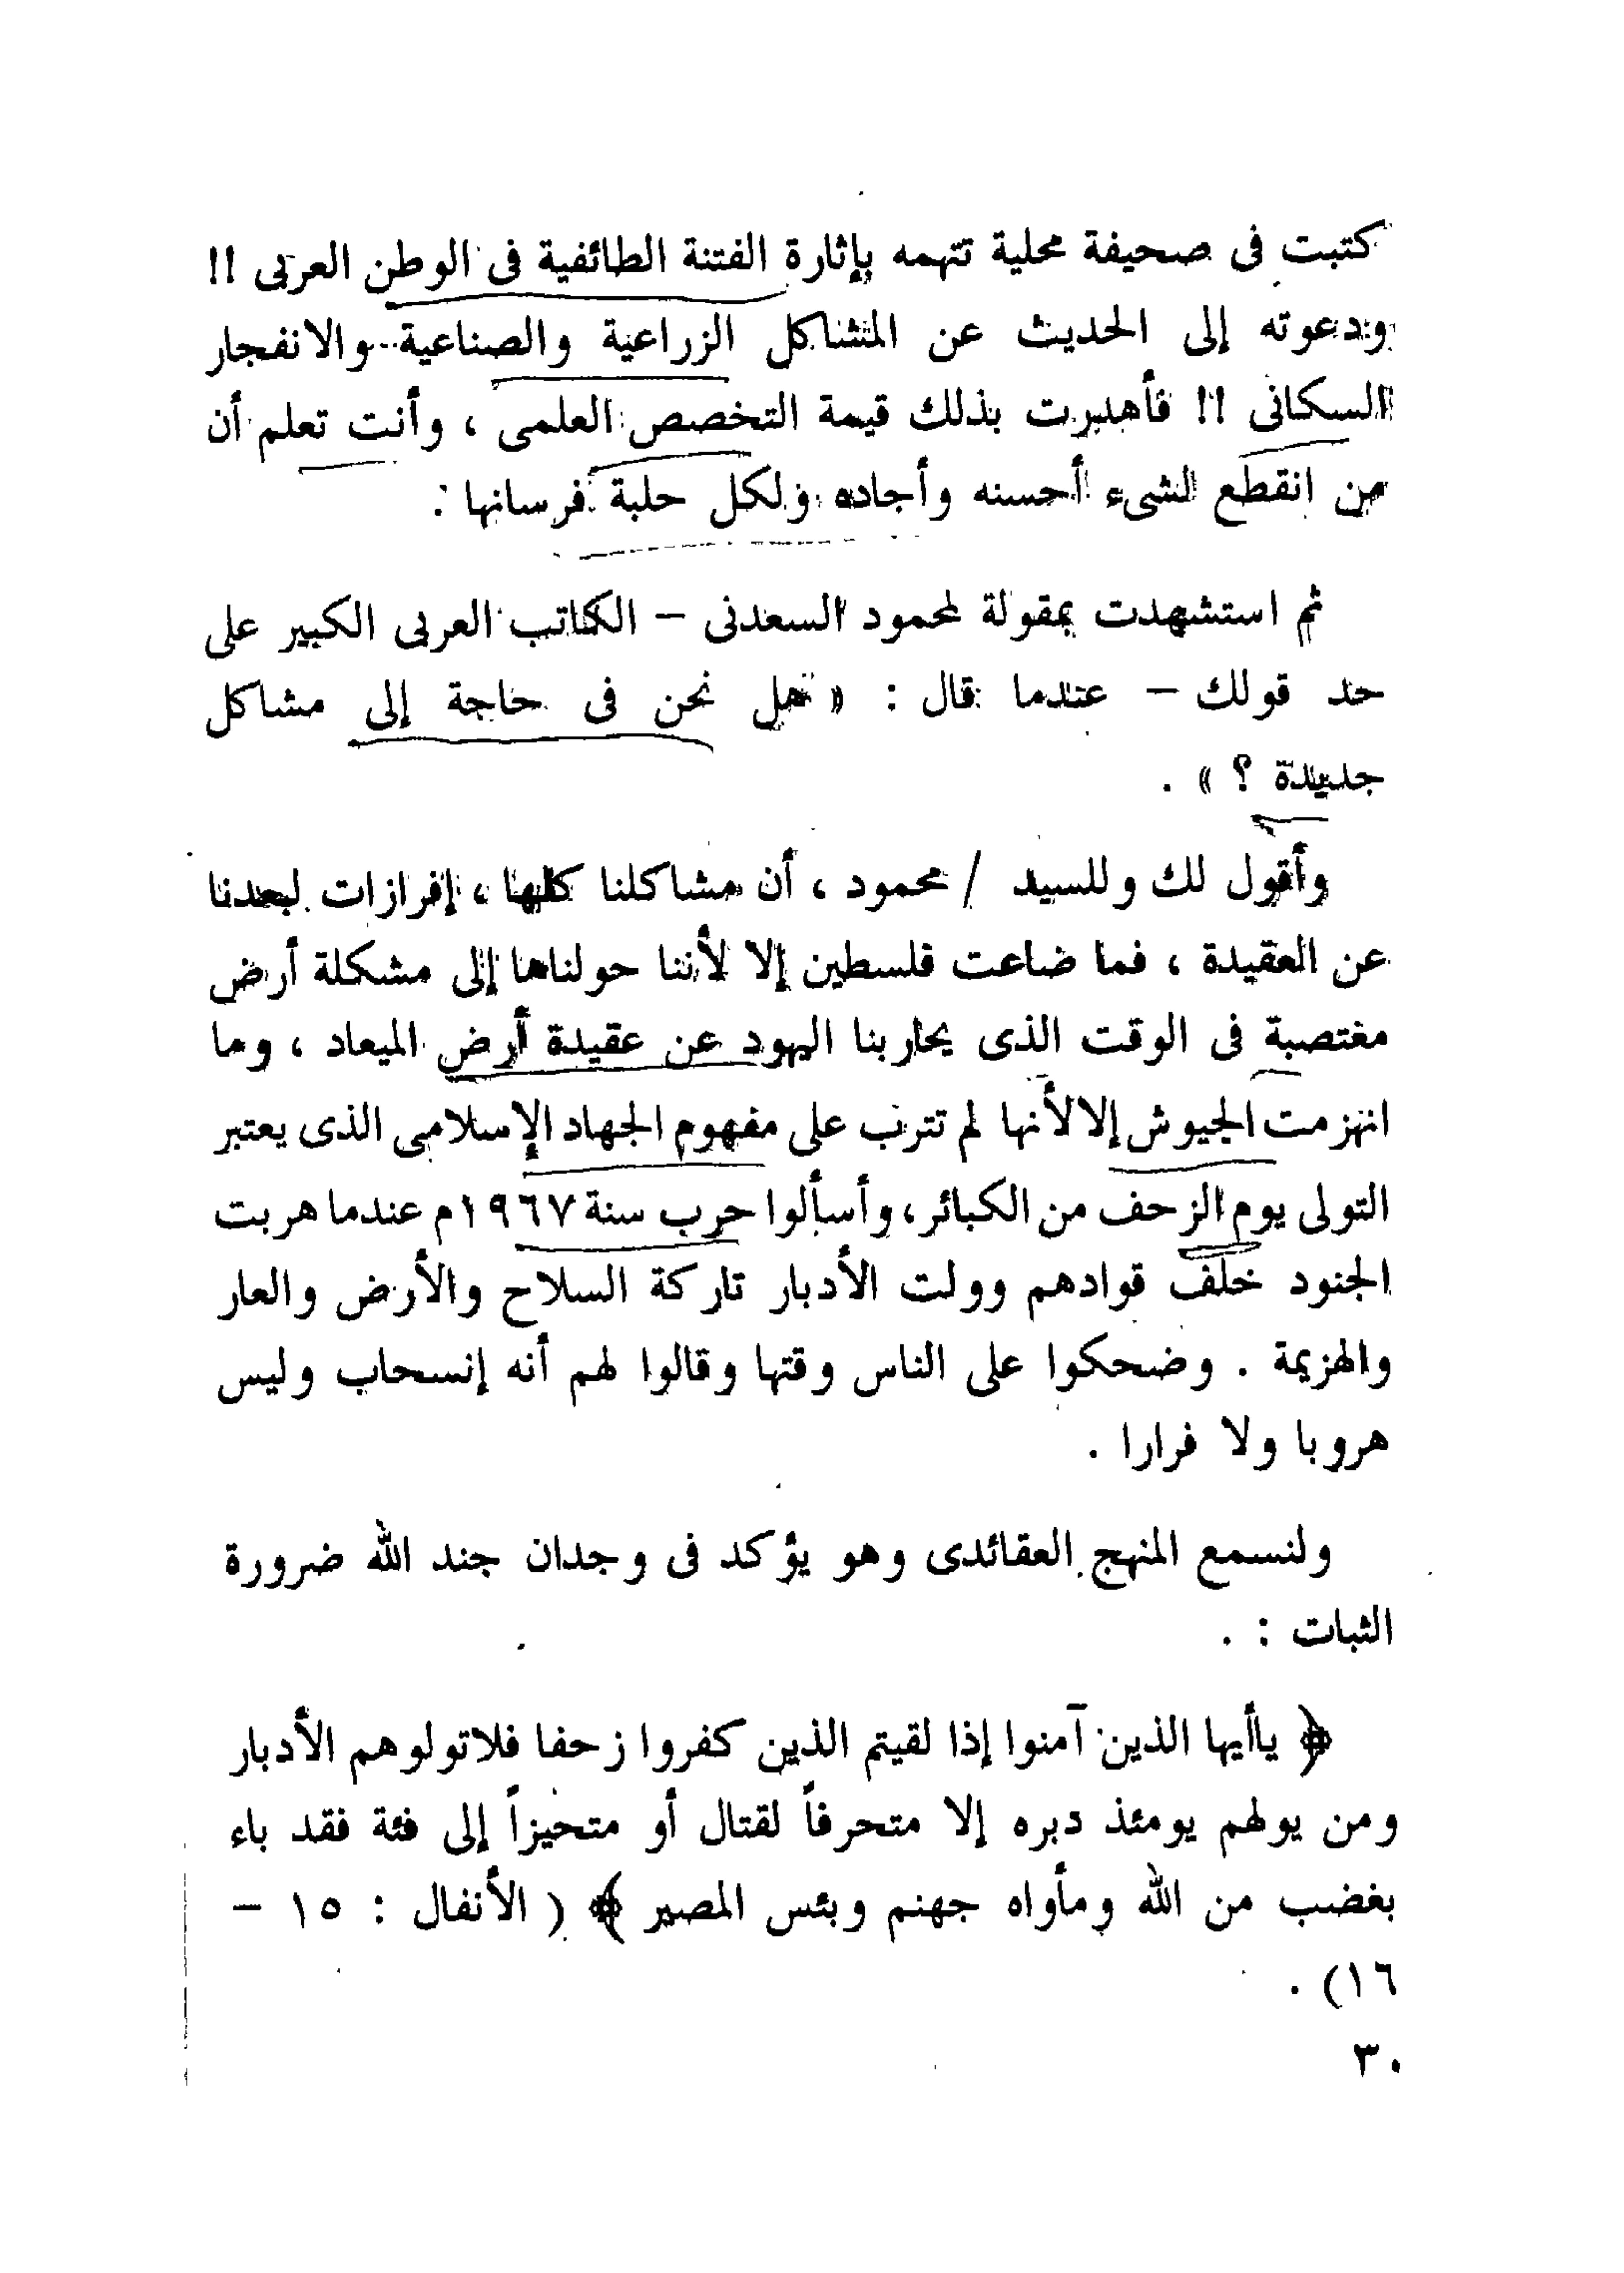 كتبت فى صحيفة محلية تتهمه بإثارة الفتنة الطائفية فى الوطن العربى !!
ودعوته إلى الحديث عن المشاكل الزراعية والصناعية والانفجار
السكانى !! فأهدرت بذلك قيمة التخصص العلمى ، وأنت تعلم أن
من انقطع لشىء أحسنه وأجاده ولكل حلبة فرسانها :
ثم استشهدت بمقولة لمحمود السعدنى – الكاتب العربى الكبير على
حد قولك – عندما قال : « هل نحن فى حاجة إلى مشاكل
جديدة ؟ » .
وأقول لك وللسيد / محمود ، أن مشاكلنا كلها ، إفرازات لبعدنا
عن العقيدة ، فما ضاعت فلسطين إلا لأننا حولناها إلى مشكلة أرض
مغتصبة فى الوقت الذى يحاربنا اليهود عن عقيدة أرض الميعاد ، وما
انهزمت الجيوش إلا لأنها لم تترب على مفهوم الجهاد الإسلامى الذى يعتبر
التولى يوم الزحف من الكبائر، وأسألوا حرب سنة ١٩٦٧م عندما هربت
الجنود خلف قوادهم وولت الأدبار تاركة السلاح والأرض والعار
والهزيمة . وضحكوا على الناس وقتها وقالوا لهم أنه إنسحاب وليس
هروبا ولا فرارا .
ولنسمع المنهج العقائدى وهو يؤكد فى وجدان جند الله ضرورة
الثبات : .
﴿ ياأيها الذين آمنوا إذا لقيتم الذين كفروا زحفا فلاتولوهم الأدبار
ومن يولهم يومئذ دبره إلا متحرفاً لقتال أو متحيزاً إلى فئة فقد باء
بغضب من الله ومأواه جهنم وبئس المصير ﴾ ( الأنفال : ١٥ –
١٦) .
٣٠